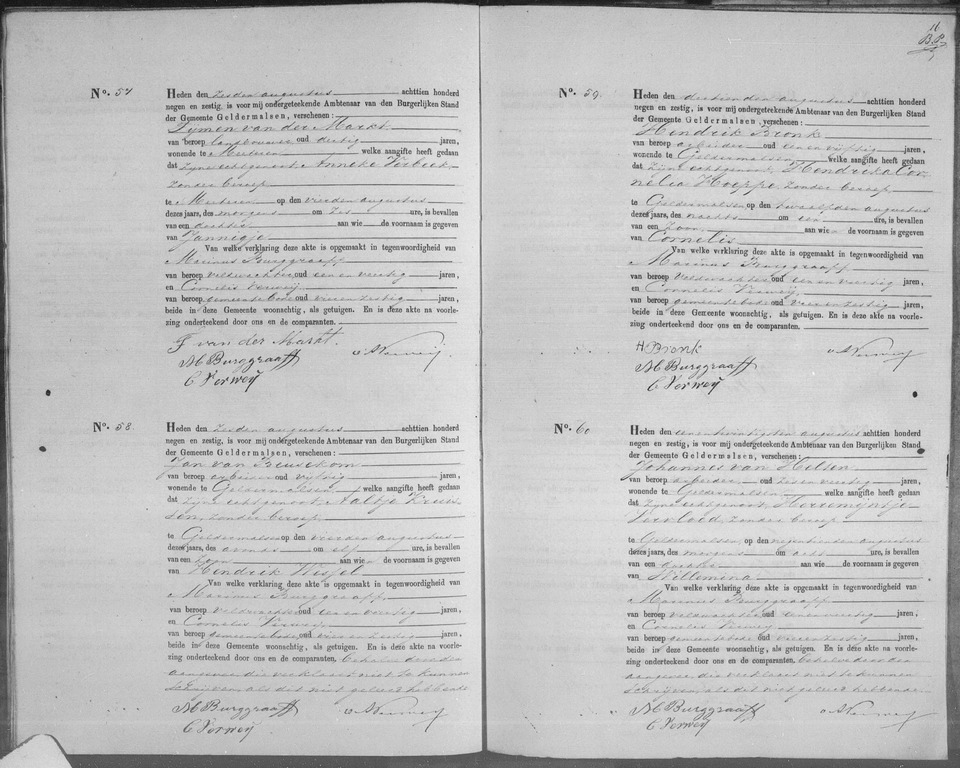 11
B.P.
No. 57
Heden den zesden augustus achttien honderd
negen en zestig, is voor mij ondergeteekende Ambtenaar van den Burgerlijken Stand
der Gemeente Geldermalsen, verschenen:
Tijmen van der Markt
van beroep landbouwer oud dertig jaren,
wonende te Meteren welke aangifte heeft gedaan
dat zijne echtgenoot Anneke Verbeek
zonder beroep
te Meteren op den vierden augustus
dezes jaars, des morgens om zes ure, is bevallen
van een dochter aan wie de voornaam is gegeven
van Jannigje
Van welke verklaring deze akte is opgemaakt in tegenwoordigheid van
Marinus Burggraaff
van beroep veldwachter oud een en veertig jaren,
en Cornelis Verweij
van beroep gemeentebode oud vier en zestig jaren,
beide in deze Gemeente woonachtig, als getuigen. En is deze akte na voorle-
zing onderteekend door ons en de comparanten.
T van der Markt.
M Burggraaff
C Verweij
No. 58
Heden den zesden augustus achttien honderd
negen en zestig, is voor mij ondergeteekende Ambtenaar van den Burgerlijken Stand
der Gemeente Geldermalsen, verschenen:
Jan van Beusekom
van beroep arbeider oud vijftig jaren,
wonende te Geldermalsen welke aangifte heeft gedaan
dat zijne echtgenoot Aaltje
zonder beroep
te Geldermalsen op den vierden augustus
dezes jaars, des avonds om elf ure, is bevallen
van een zoon aan wien de voornaam is gegeven
van Hendrik Wessel
Van welke verklaring deze akte is opgemaakt in tegenwoordigheid van
Marinus Burggraaff
van beroep veldwachter oud een en veertig jaren,
en Cornelis Verweij
van beroep gemeentebode oud vier en zestig jaren,
beide in deze Gemeente woonachtig, als getuigen. En is deze akte na voorle-
zing onderteekend door ons en de comparanten. behalve door den
aangever die verklaart niet te kunnen
schrijven als dat niet geleerd hebbende
M Burggraaff
C Verweij
No. 59.
Heden den dertienden augustus achttien honderd
negen en zestig, is voor mij ondergeteekende Ambtenaar van den Burgerlijken Stand
der Gemeente Geldermalsen, verschenen:
Hendrik Bronk
van beroep arbeider oud een en vijftig jaren,
wonende te Geldermalsen welke aangifte heeft gedaan
dat zijne echtgenoot, Hendrika Cor-
nelia Hoeppe, zonder beroep
te Geldermalsen op den twaalfden augustus
dezes jaars, des nachts om een ure, is bevallen
van een zoon aan wien de voornaam is gegeven
van Cornelis
Van welke verklaring deze akte is opgemaakt in tegenwoordigheid van
Marinus Burggraaff
van beroep veldwachter oud een en veertig jaren,
en Cornelis Verweij
van beroep gemeentebode oud vier en zestig jaren,
beide in deze Gemeente woonachtig, als getuigen. En is deze akte na voorle-
zing onderteekend door ons en de comparanten.
H Bronk
M Burggraaff
C Verweij
No. 60
Heden den een en twintigsten augustus achttien honderd
negen en zestig, is voor mij ondergeteekende Ambtenaar van den Burgerlijken Stand
der Gemeente Geldermalsen, verschenen:
Johannes van Helsen
van beroep arbeider oud zes en veertig jaren,
wonende te Geldermalsen welke aangifte heeft gedaan
dat zijne echtgenoot,
zonder beroep
te Geldermalsen, op den negentienden augustus
dezes jaars, des morgens om acht ure, is bevallen
van een dochter aan wie de voornaam is gegeven
van Willemina
Van welke verklaring deze akte is opgemaakt in tegenwoordigheid van
Marinus Burggraaff
van beroep veldwachter oud een en veertig jaren,
en Cornelis Verweij
van beroep gemeentebode oud vier en zestig jaren,
beide in deze Gemeente woonachtig, als getuigen. En is deze akte na voorle-
zing onderteekend door ons en de comparanten. behalve door den
aangever die verklaart niet te kunnen
schrijven als dat niet geleerd hebbende
M Burggraaff
C Verweij